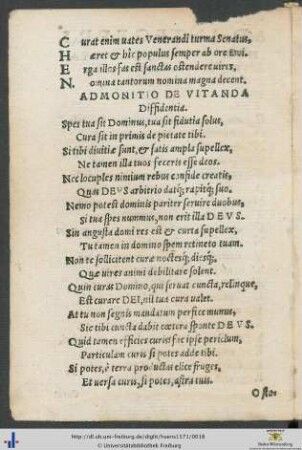 C urat enim uates Venerandi turma Senatus,
H æret & hîc populus semper ab ore uiri.
E rga illos fas est sanctas ostendere uires,
N omina tantorum nomina magna decent.
ADMONITIO DE VITANDA
Diffidentia.
Spes tua sit Dominus, tua sit fidutia solus,
Cura sit in primis de pietate tibi.
Si tibi diuitiæ sunt, & satis ampla supellex,
Ne tamen illa tuos feceris esse deos.
Nec locuples nimium rebus confide creatis,
Quas DEVS arbitrio datq; rapitq; suo.
Nemo potest dominis pariter seruire duobus,
Si tua spes nummus, non erit illa DEVS.
Sin angusta domi res est & curta supellex,
Tu tamen in domino spem retineto tuam.
Non te sollicitent curæ noctesq; diesq;,
Quæ uires animi debilitare solent.
Quin curas Domino, qui seruat cuncta, relinque,
Est curare DEI, nil tua cura ualet.
At tu non segnis mandatum perfice munus,
Sic tibi cuncta dabit cætera sponte DEVS.
Quid tamen efficies curis fac ipse periclum,
Particulam curis si potes adde tibi.
Si potes, è terra productas elice fruges,
Et uersa curis, si potes, astra tuis.
O stos
http://dl.ub.uni-freiburg.de/diglit/huens1571/0018
© Universitätsbibliothek Freiburg
Baden-Württemberg